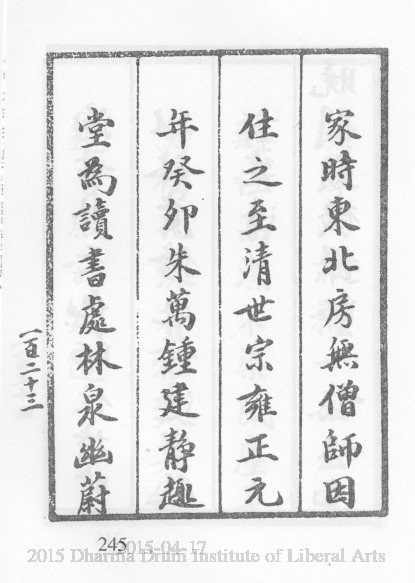 家時東北房無僧師因
住之至清世宗雍正元
年癸卯朱萬鍾建靜趣
堂為讀書處林泉幽蔚
一百二十三
245
2015-04-17
2015 Dharma Drum Institute of Liberal Arts